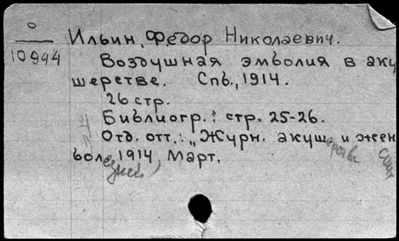 о
10944
Ильин, Фёдор Николаевич.
Воздушная эмболия в аку
шерстве. Спб., 1914.
26 стр.
Библиогр.: стр. 25-26.
Отд. отт.: „Журн. акуш и жен
боле 1914, Март.